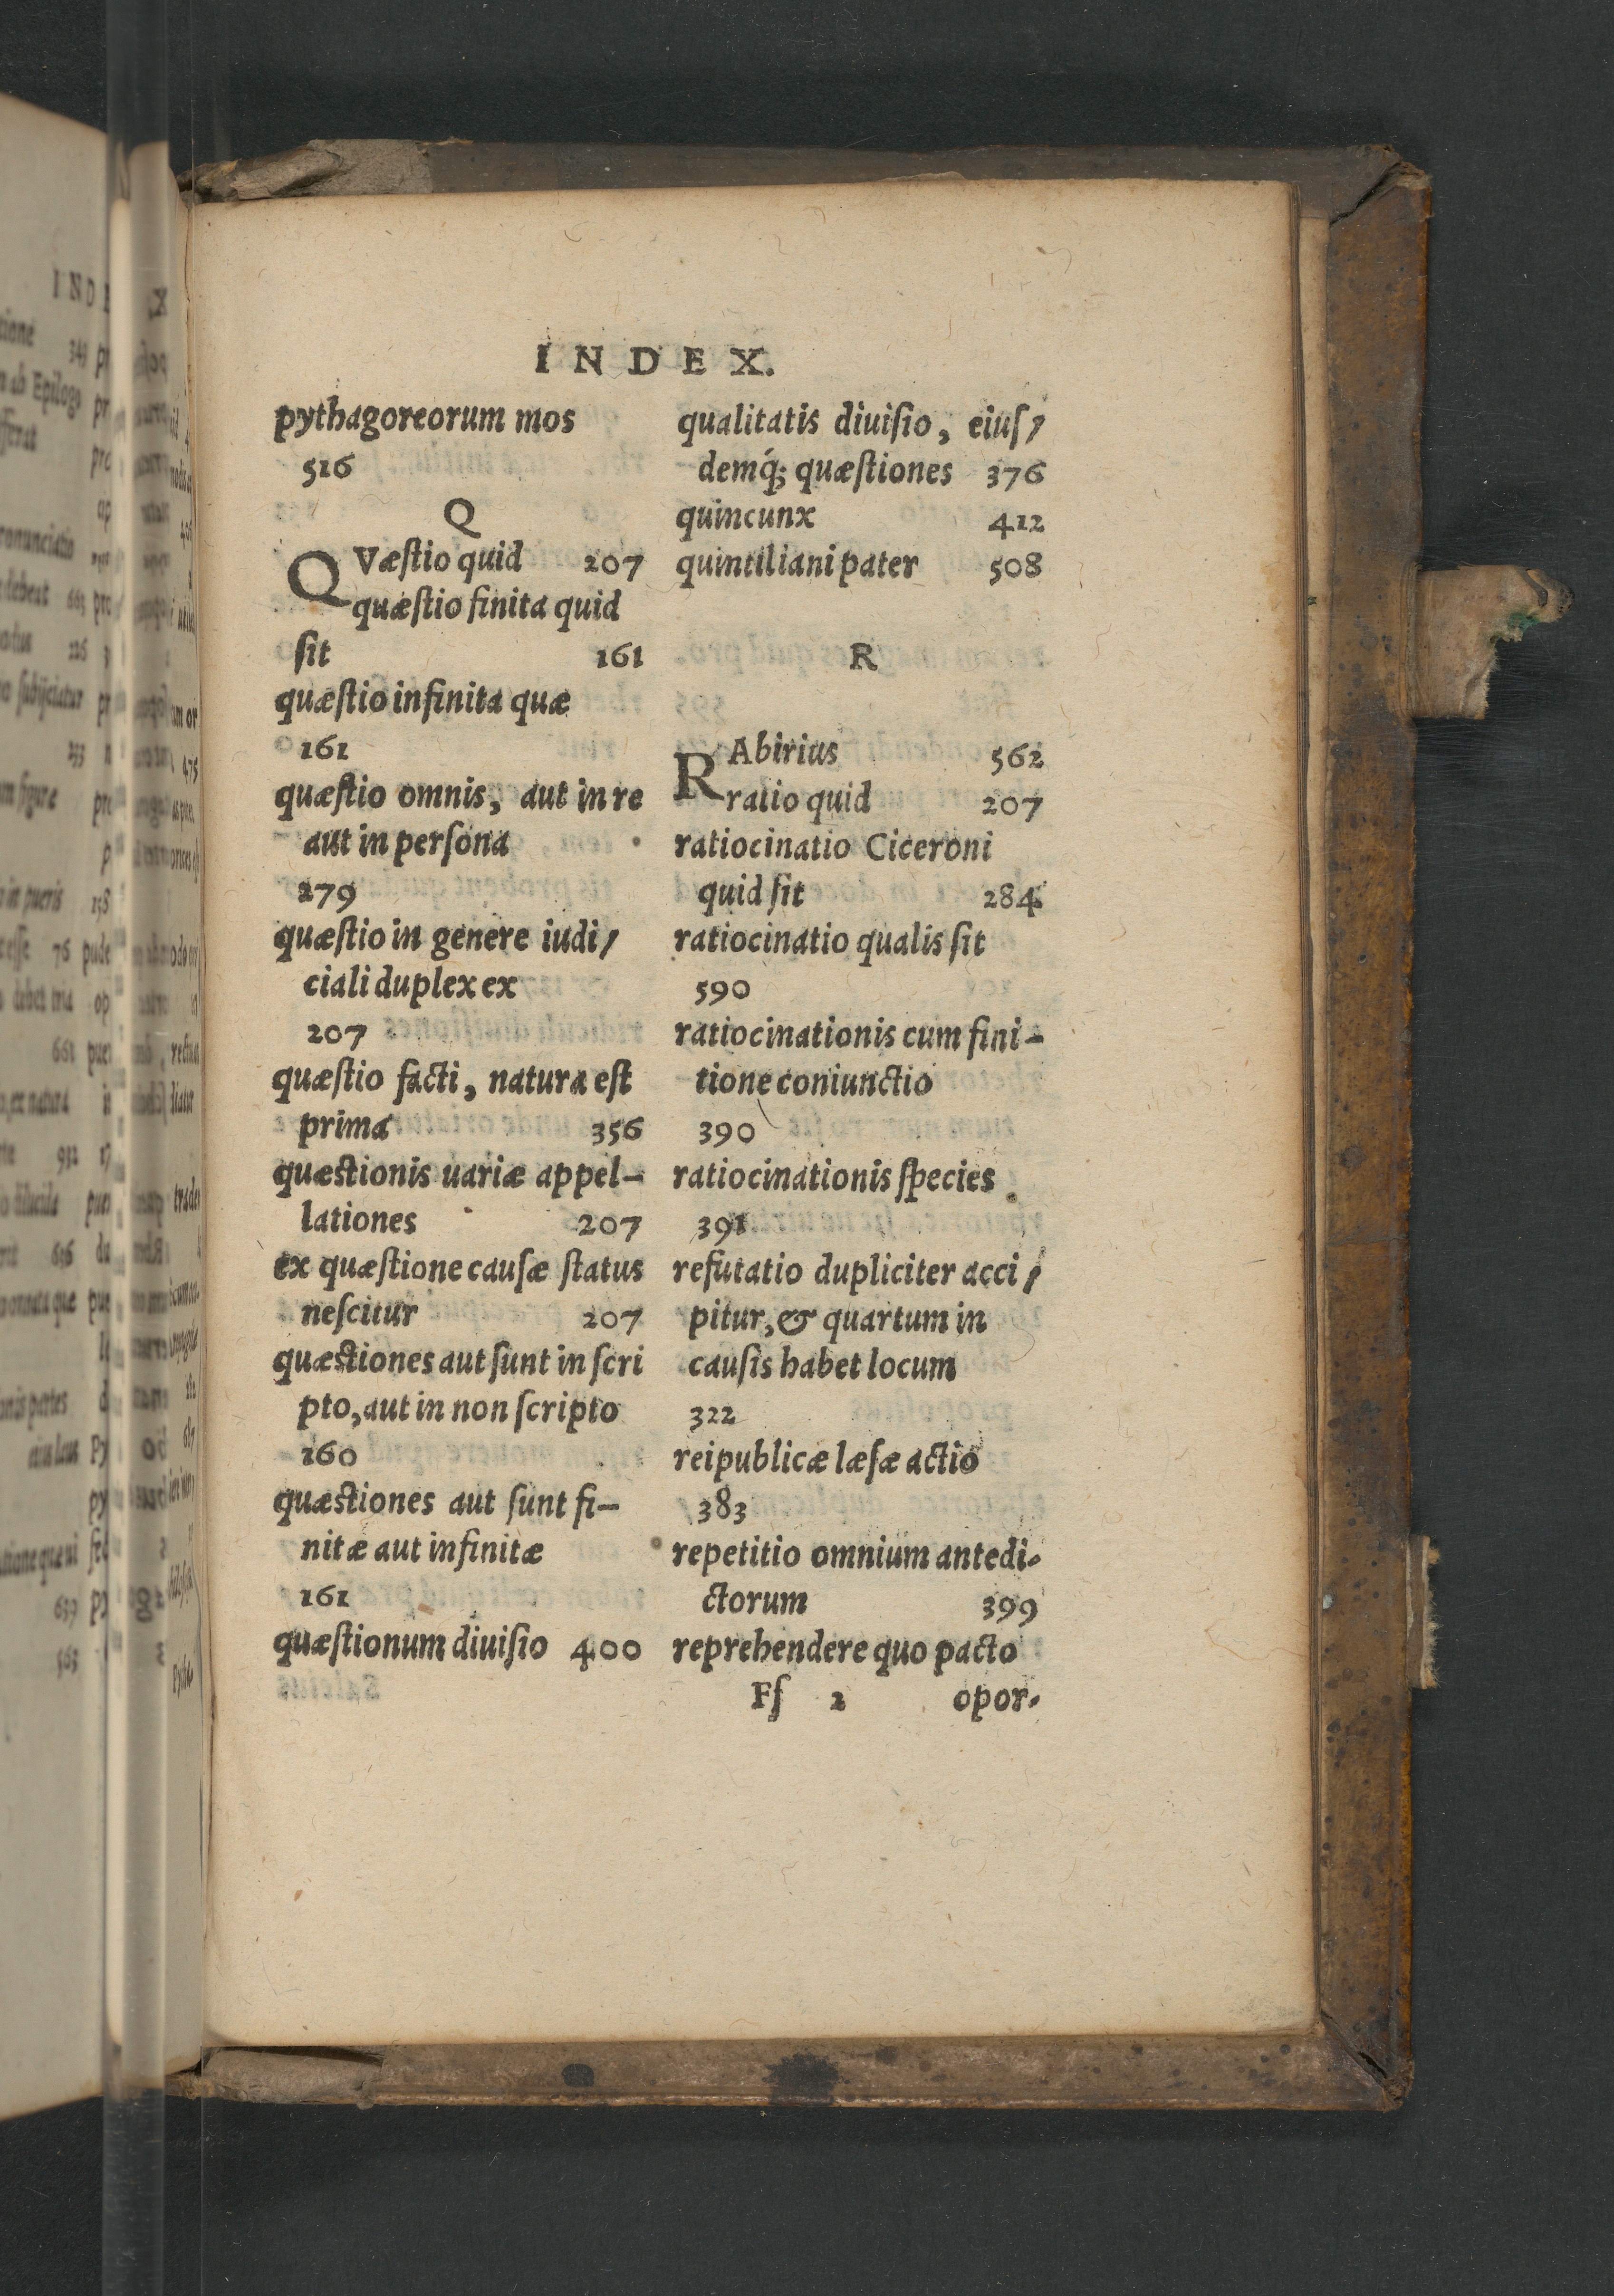 INDEX.
pythagoreorum mos
516
Q
QVæſtio quid 207
quæſtio finita quid
ſit 161
quæſtio infinita quæ
161
quæſtio omnis, aut in re
aut in perſona
279
quæſtio in genere iudi/
ciali duplex ex
207
quæſtio facti, natura eſt
prima 356
quæstionis uariæ appel-
lationes 207
ex quæſtione cauſæ ſtatus
neſcitur 207
quæstiones aut ſunt in ſcri
pto, aut in non ſcripto
160
quæstiones aut ſunt fi-
nitæ aut infinitæ
161
quæſtionum diuiſio 400
qualitatis diuiſio, eiuſ/
demq́; quæſtiones 376
quincunx 412
quintiliani pater 508
R
RAbirius 562
ratio quid 207
ratiocinatio Ciceroni
quid ſit 284
ratiocinatio qualis ſit
590
ratiocinationis cum fini-
tione coniunctio
390
ratiocinationis ſpecies
391
refutatio dupliciter acci/
pitur, & quartum in
cauſis habet locum
322
reipublicæ læſæ actio
383
repetitio omnium antedi-
ctorum 399
reprehendere quo pacto
Fſ 2 opor-